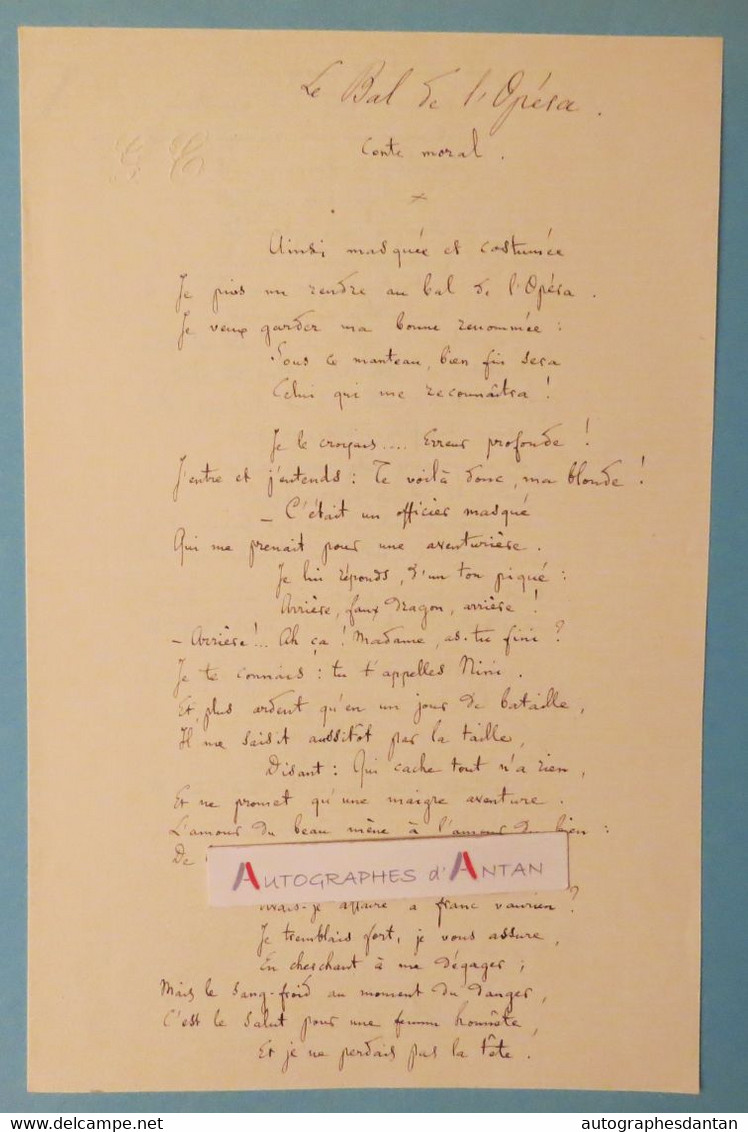 Le Bal de l'Opéra.
Conte moral.
Ainsi masquée et costumée
Je puis me rendre au bal de l'Opéra.
Je veux garder ma bonne renommée :
Sous ce manteau, bien fin sera
Celui qui me reconnaîtra !
Je le croyais.... Erreur profonde !
J'entre et j'entends : Te voilà donc, ma blonde !
– C'était un officier masqué
Qui me prenait pour une aventurière.
Je lui réponds, d'un ton piqué :
Arrière, faux dragon, arrière !
– Arrière !... Ah ça ! Madame, as-tu fini ?
Je te connais : tu t'appelles Nini.
Et, plus ardent qu'en un jour de bataille,
Il me saisit aussitot par la taille,
Disant : Qui cache tout n'a rien,
Et ne promet qu'une maigre aventure.
L'amour du beau mène à l'amour du bien :
De
AUTOGRAPHES d'ANTAN
Avais-je affaire à franc vaurien ?
Je tremblais fort, je vous assure,
En cherchant à me dégager ;
Mais le sang-froid au moment du danger,
C'est le salut pour une femme honnête,
Et je ne perdais pas la tête.
delcampe.net
autographesdantan